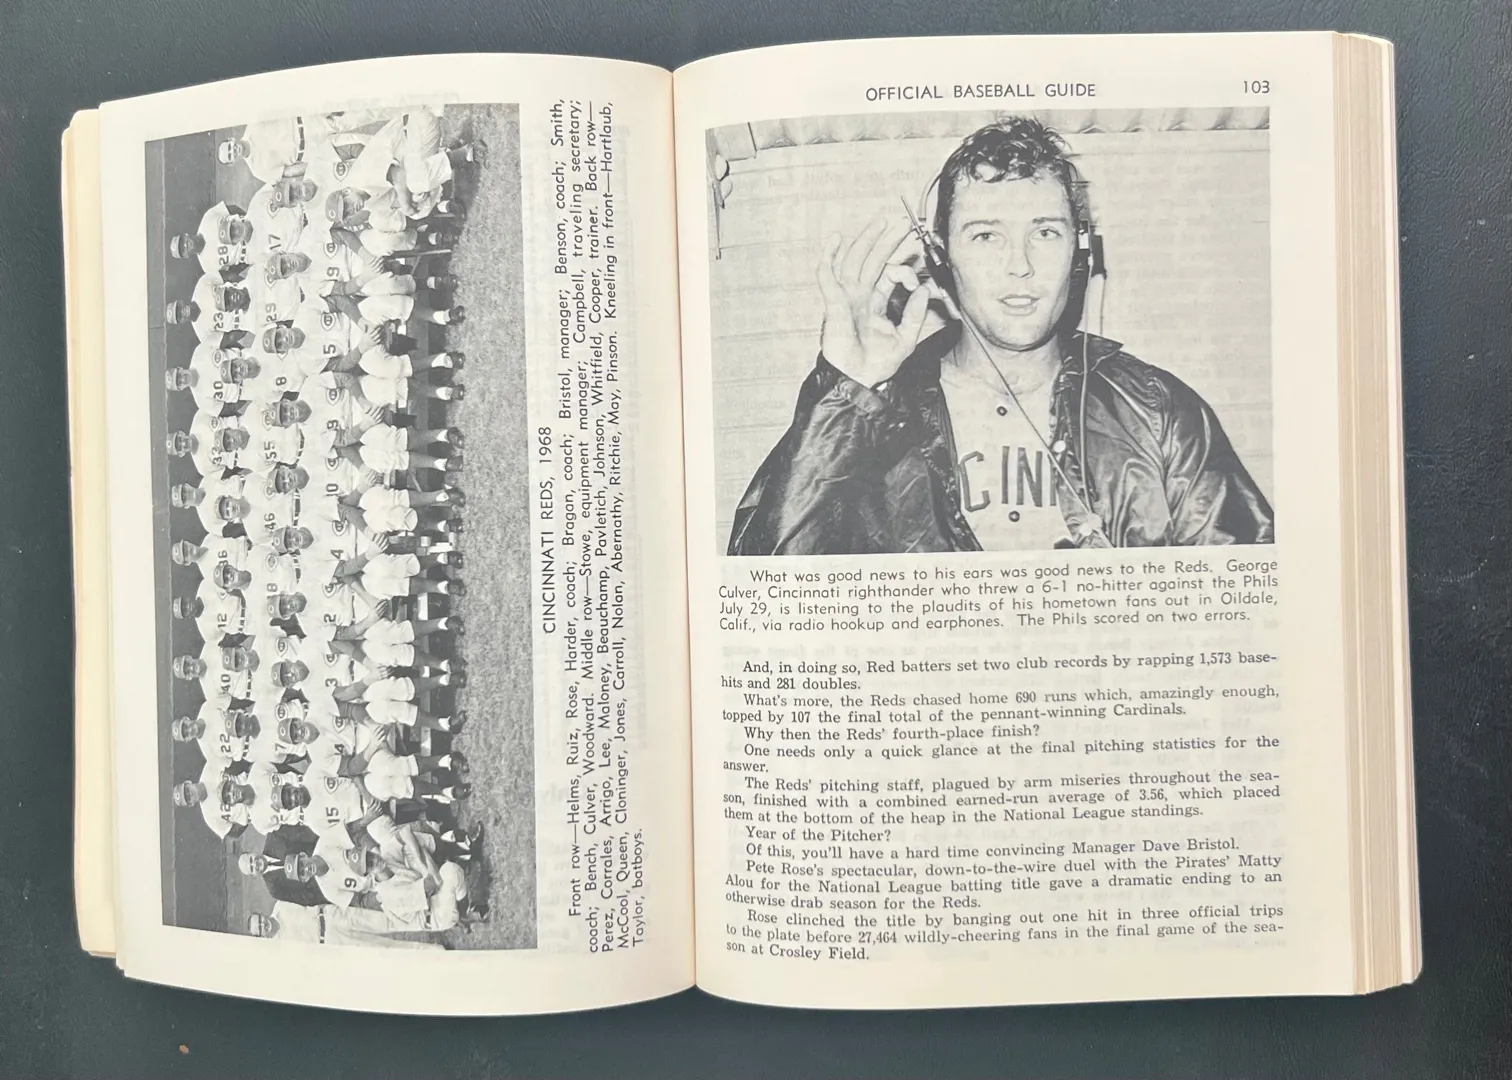 CINCINNATI REDS, 1968
Front row—Helms, Ruiz, Rose, Harder, coach; Bragan, coach; Bristol, manager; Benson, coach; Smith,
coach; Bench, Culver, Woodward. Middle row—Stowe, equipment manager; Campbell, traveling secretary;
Perez, Corrales, Arrigo, Lee, Maloney, Beauchamp, Pavletich, Johnson, Whitfield, Cooper, trainer. Back row—
McCool, Queen, Cloninger, Jones, Carroll, Nolan, Abernathy, Ritchie, May, Pinson. Kneeling in front—Hartlaub,
Taylor, batboys.
OFFICIAL BASEBALL GUIDE 103
CINN
What was good news to his ears was good news to the Reds. George
Culver, Cincinnati righthander who threw a 6-1 no-hitter against the Phils
July 29, is listening to the plaudits of his hometown fans out in Oildale,
Calif., via radio hookup and earphones. The Phils scored on two errors.
And, in doing so, Red batters set two club records by rapping 1,573 base-
hits and 281 doubles.
What's more, the Reds chased home 690 runs which, amazingly enough,
topped by 107 the final total of the pennant-winning Cardinals.
Why then the Reds' fourth-place finish?
One needs only a quick glance at the final pitching statistics for the
answer.
The Reds' pitching staff, plagued by arm miseries throughout the sea-
son, finished with a combined earned-run average of 3.56, which placed
them at the bottom of the heap in the National League standings.
Year of the Pitcher?
Of this, you'll have a hard time convincing Manager Dave Bristol.
Pete Rose's spectacular, down-to-the-wire duel with the Pirates' Matty
Alou for the National League batting title gave a dramatic ending to an
otherwise drab season for the Reds.
Rose clinched the title by banging out one hit in three official trips
to the plate before 27,464 wildly-cheering fans in the final game of the sea-
son at Crosley Field.